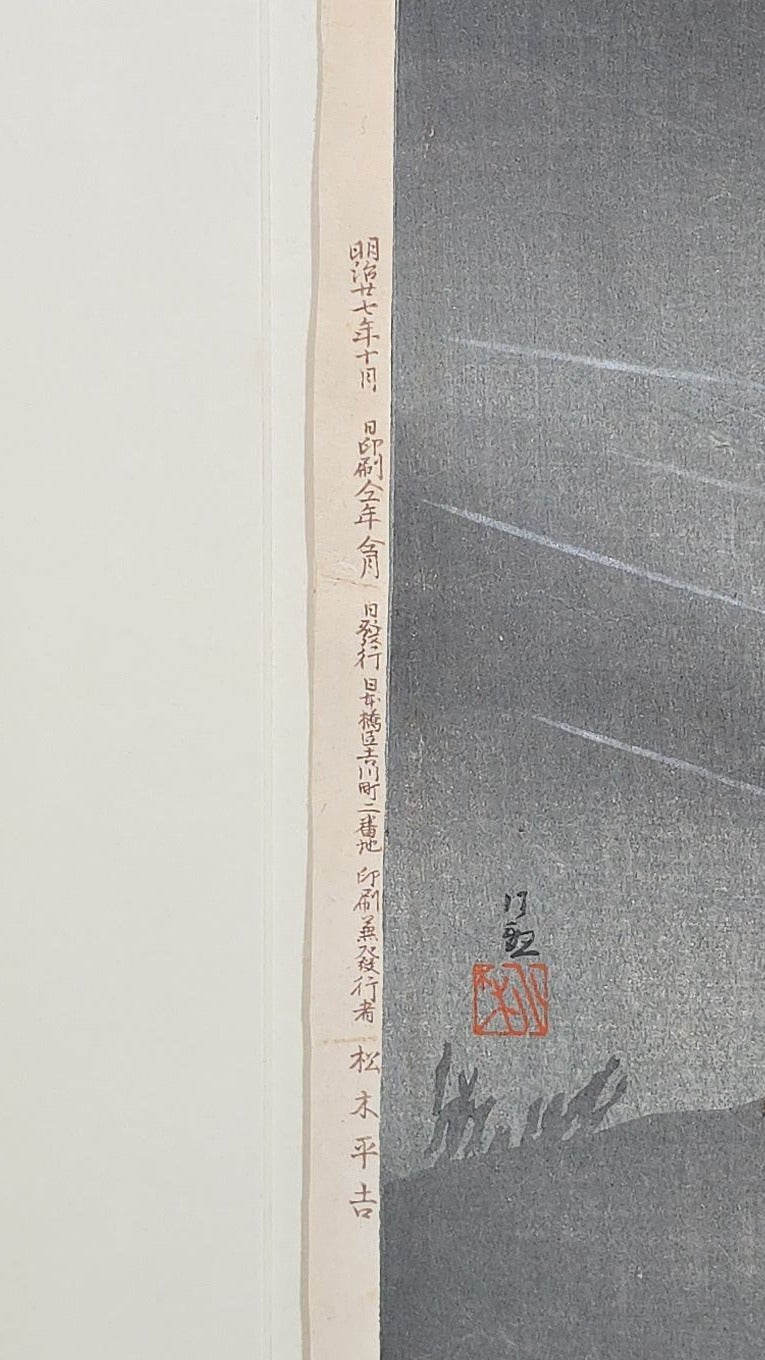 明治廿七年十月 日印刷仝年仝月 日發行日本橋區吉川町二番地印刷兼發行者松木平吉